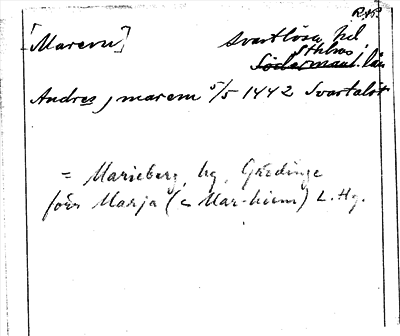 RAP
[Marevn] Svartlösa hd
Sthlms
Södermanl. län
Andres j marem 5/5 1442 Svartalöt
= Marieberg, hg, Grödinge
förr Marja (< Mar-hiem) L. Hg.